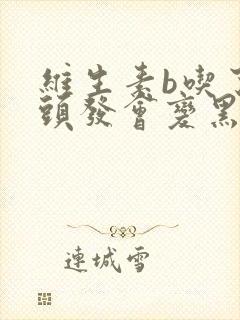 維生素b喫了
頭發會變黑
連城雪